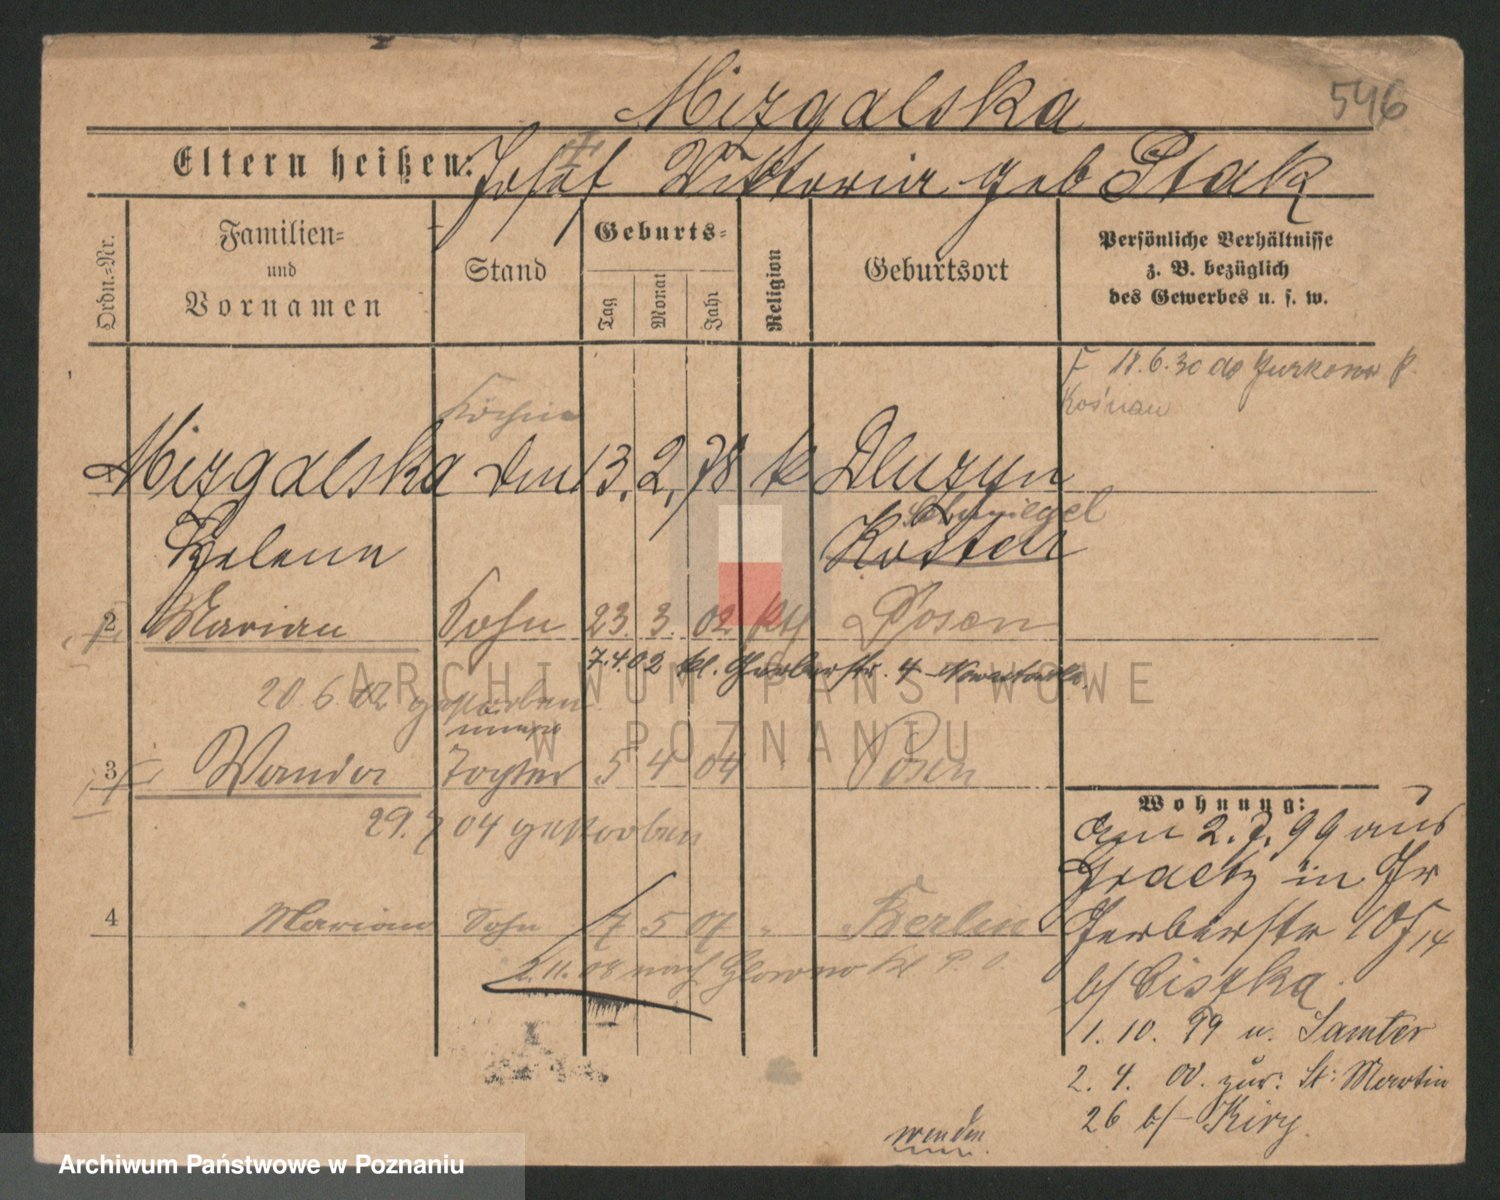 Mizgalska
546
Eltern heißen: Josef Viktoria geb Ptak
Ordn.-Nr.
Familien-
und
Vornamen
Stand
Geburts-
Tag
Monat
Jahr
Religion
Geburtsort
Persönliche Verhältnisse
z. B. bezüglich
des Gewerbes u. s. w.
18.6.30
Köchin
1 Mizgalska 13. 2. 78 k Dluzyn
Schmiegel
Helena Kosten
2 Marian Sohn 23. 3. 02 kth Posen
7.4.02 kl. Gerberstr. 4
20.6.02 gestorben
3 Wanda Tochter 5 4 04 Posen
29.7 04 gestorben
4 Marian Sohn 7 5 07 " Berlin
2.11.08 nach Glowno
Wohnung:
am 2.7.99 aus
Graetz in Gr
Gerberstr
b/
1. 10. 99 n. Samter
2. 4. 00. zur: St: Martin
26 b/
wenden
ARCHIWUM PAŃSTWOWE
W POZNANIU
Archiwum Państwowe w Poznaniu